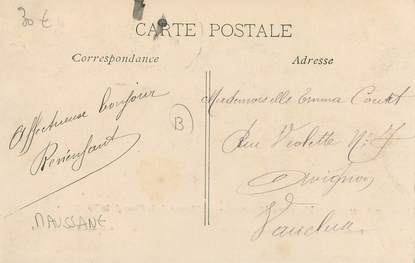 30 €
CARTE POSTALE
Correspondance
Adresse
Affectueux bonjour
B
Mademoiselle Emma
Rue Violette N: 7
Avignon
Vaucluse
MAUSSANE